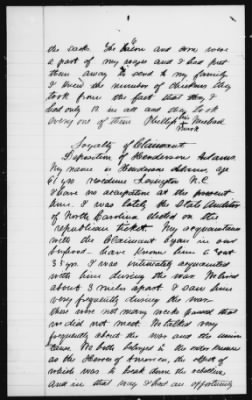 the sack. The Bacon and corn were
a part of my wages and I had put
them away to send to my family
I know the number of chickens they
took from the fact that they I
had only 12 in all and they took
every one of them Phillip his mark
Loyalty of Claimant
Deposition of Henderson Adams.
My name is Henderson Adams age
61 yrs residence Lexington N.C.
I have no occupation at the present
time. I was lately the State Auditor
of North Carolina elected on the
republican ticket. My acquaintance
with the Claimant began in our
boyhood. have known him about
35 yrs. I was intimately acquainted
with him during the war. We lived
about 3 miles apart. I saw him
very frequently during the war
there were not many weeks passed that
we did not meet. We talked very
frequently about the war and the union
cause. We both belonged to the order known
as the Heroes of America, the object of
which was to break down the rebellion
and in that way I had an opportunity